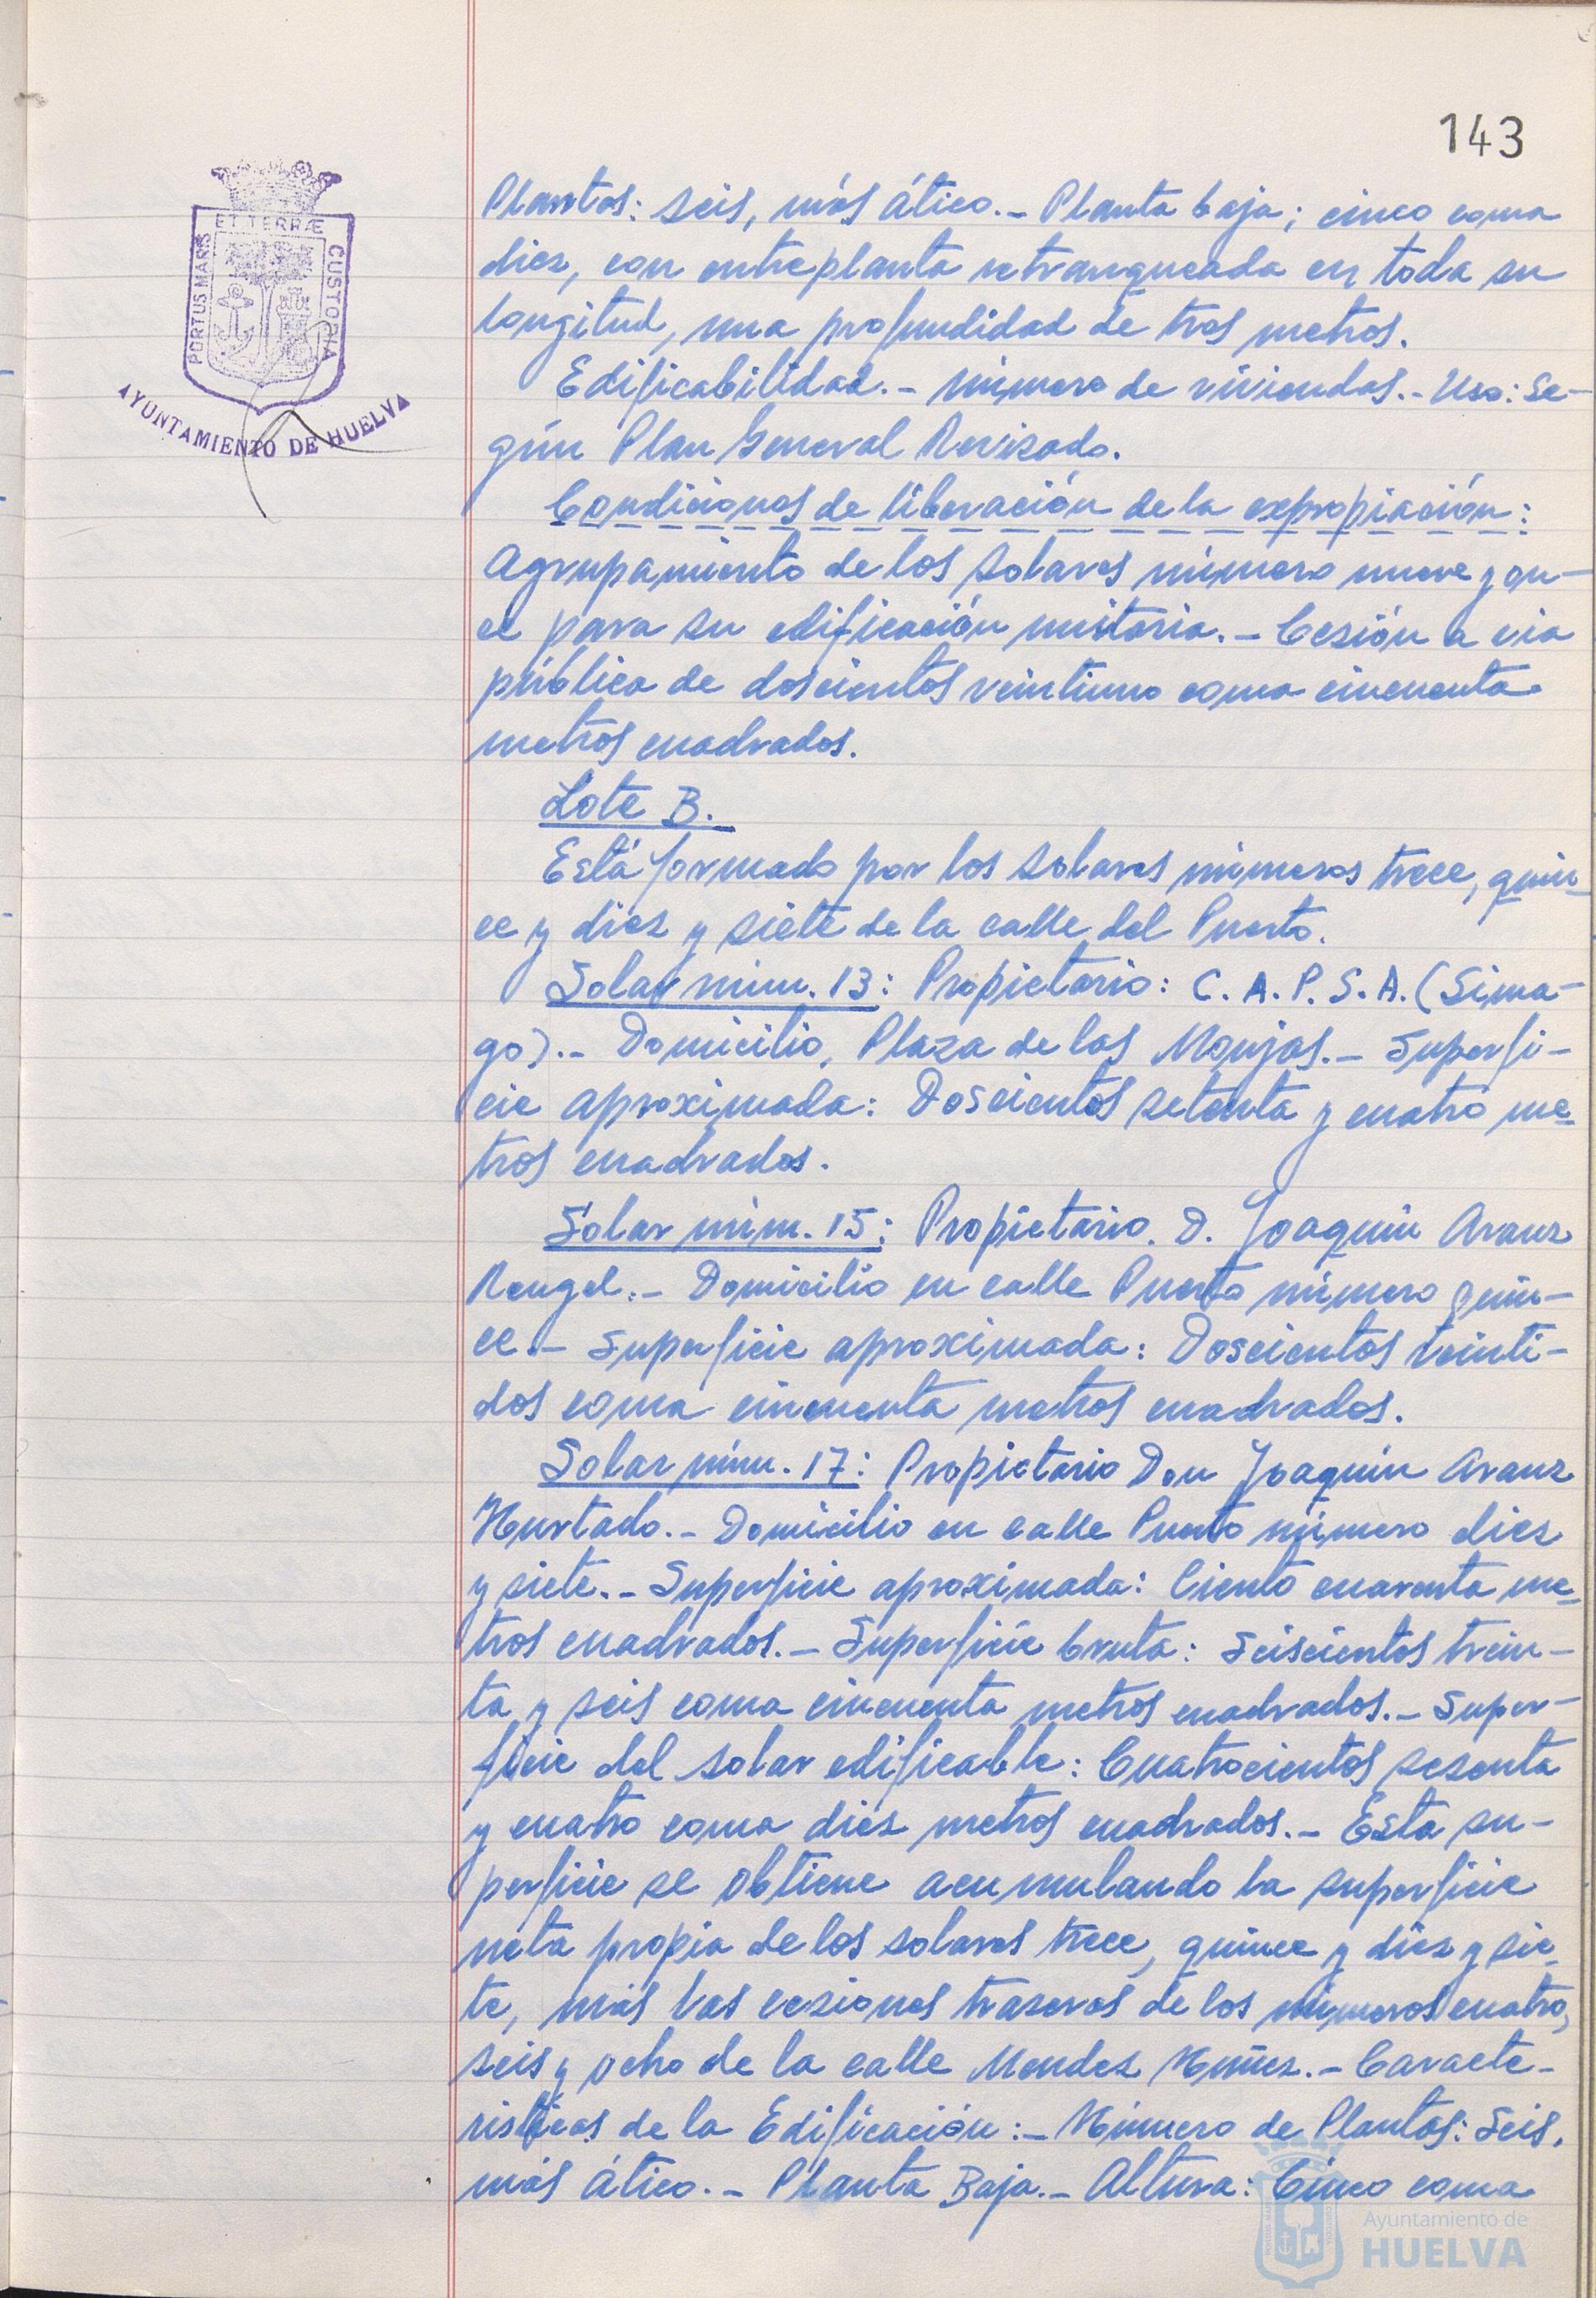 143
ET TERRÆ
PORTUS MARIS
CUSTODIA
AYUNTAMIENTO DE HUELVA
Plantas: seis, más ático.- Planta baja; cinco coma
diez, con entreplanta retranqueada en toda su
longitud, una profundidad de tres metros.
Edificabilidad.- número de viviendas.- Uso: Se-
gún Plan General Revisado.
Condiciones de liberación de la expropiación:
Agrupamiento de los solares número nueve y on-
ce para su edificación unitaria.- Cesión a via
pública de doscientos veintiuno coma cincuenta
metros cuadrados.
Lote B.
Está formado por los solares números trece, quin-
ce y diez y siete de la calle del Puerto.
Solar núm. 13: Propietario: C.A.P.S.A. (Sima-
go).- Domicilio, Plaza de las Monjas.- Superfi-
cie aproximada: Doscientos setenta y cuatro me-
tros cuadrados.
Solar núm. 15: Propietario. D. Joaquín Aranz
Rengel.- Domicilio en calle Puerto número quin-
ce.- Superficie aproximada: Doscientos veinti-
dos coma cincuenta metros cuadrados.
Solar núm. 17: Propietario Don Joaquín Aranz
Hurtado.- Domicilio en calle Puerto número diez
y siete.- Superficie aproximada: Ciento cuarenta me-
tros cuadrados.- Superficie bruta: Seiscientos trein-
ta y seis coma cincuenta metros cuadrados.- Super-
ficie del solar edificable: Cuatrocientos sesenta
y cuatro coma diez metros cuadrados.- Esta su-
perficie se obtiene acumulando la superficie
neta propia de los solares trece, quince y diez y sie-
te, más las cesiones traseras de los números cuatro,
seis y ocho de la calle Mendez Nuñez.- Caracte-
risticas de la Edificación:- Número de Plantas: Seis,
más ático.- Planta Baja.- Altura: Cinco coma
Ayuntamiento de
HUELVA